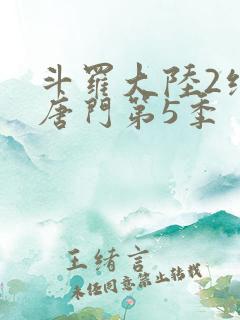 斗羅大陸2
唐門第5季
王緒言
未經同意禁止轉載